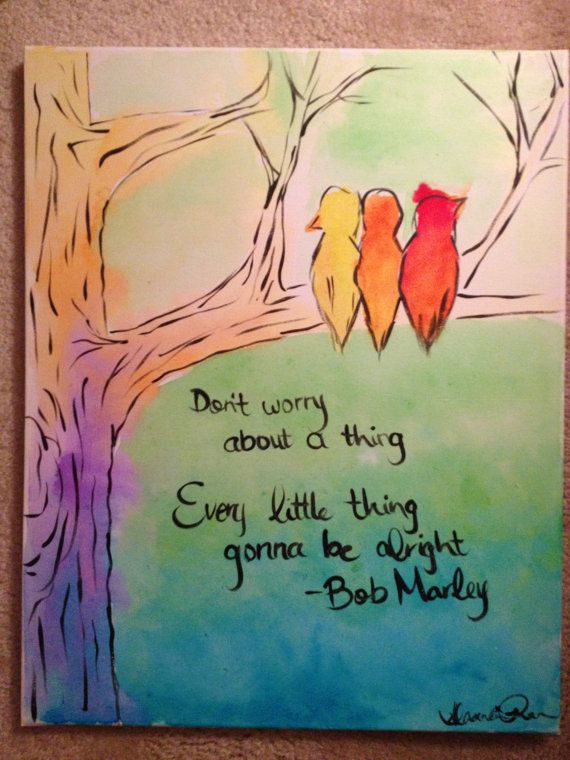 Don't worry
about a thing
Every little thing
gonna be alright
-Bob Marley